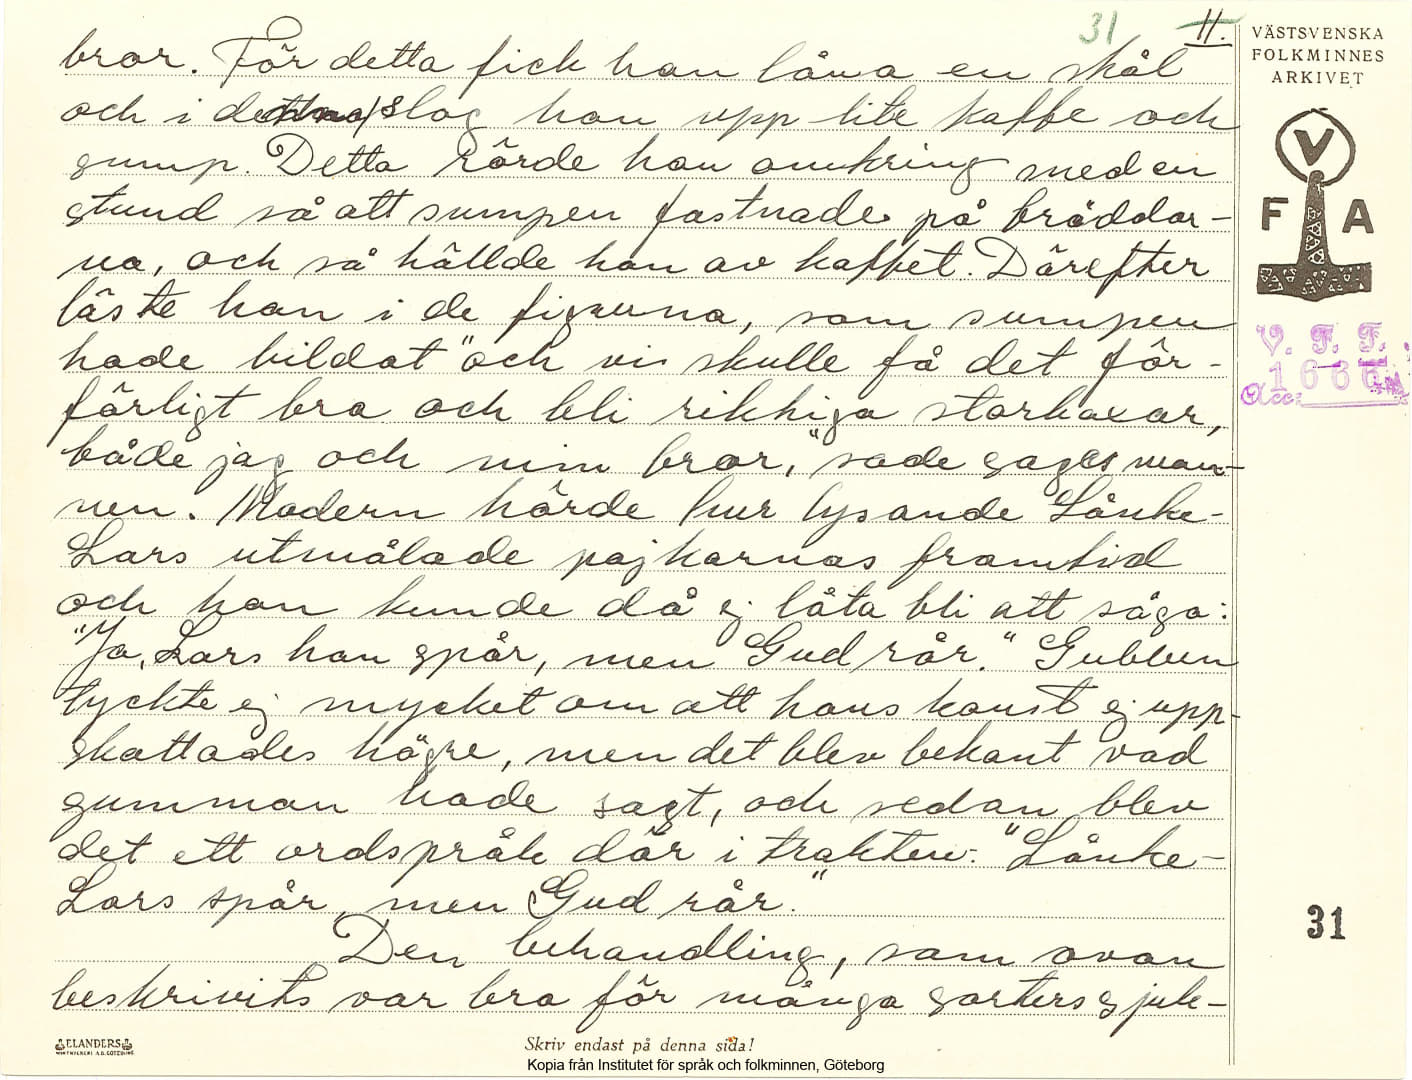 31 11.
bror. För detta fick han låna en skål
och i denna slog han upp lite kaffe och
sump. Detta rörde han omkring med en
stund så att sumpen fastnade på bräddar-
na, och så hällde han av kaffet. Därefter
läste han i de figurerna, som sumpen
hade bildat "och vi skulle få det för-
färligt bra och bli rikkiga storkaxar,
både jag och min bror," sade sages man-
nen. Modern hörde hur lysande Lånke-
Lars utmålade pojkarnas framtid
och hon kunde då ej låta bli att säga:
"Ja, Lars han spår, men Gud rår." Gubben
tyckte ej mycket om att hans konst ej upp-
skattades högre, men det blev bekant vad
gumman hade sagt, och sedan blev
det ett ordspråk där i trakten: "Lånke-
Lars spår, men Gud rår."
Den behandling, som ovan
beskrivits var bra för många sorters sjuk-
VÄSTSVENSKA
FOLKMINNES
ARKIVET
V
F A
V. F. F.
1666
Acc:
31
ELANDERS
Skriv endast på denna sida!
Kopia från Institutet för språk och folkminnen, Göteborg